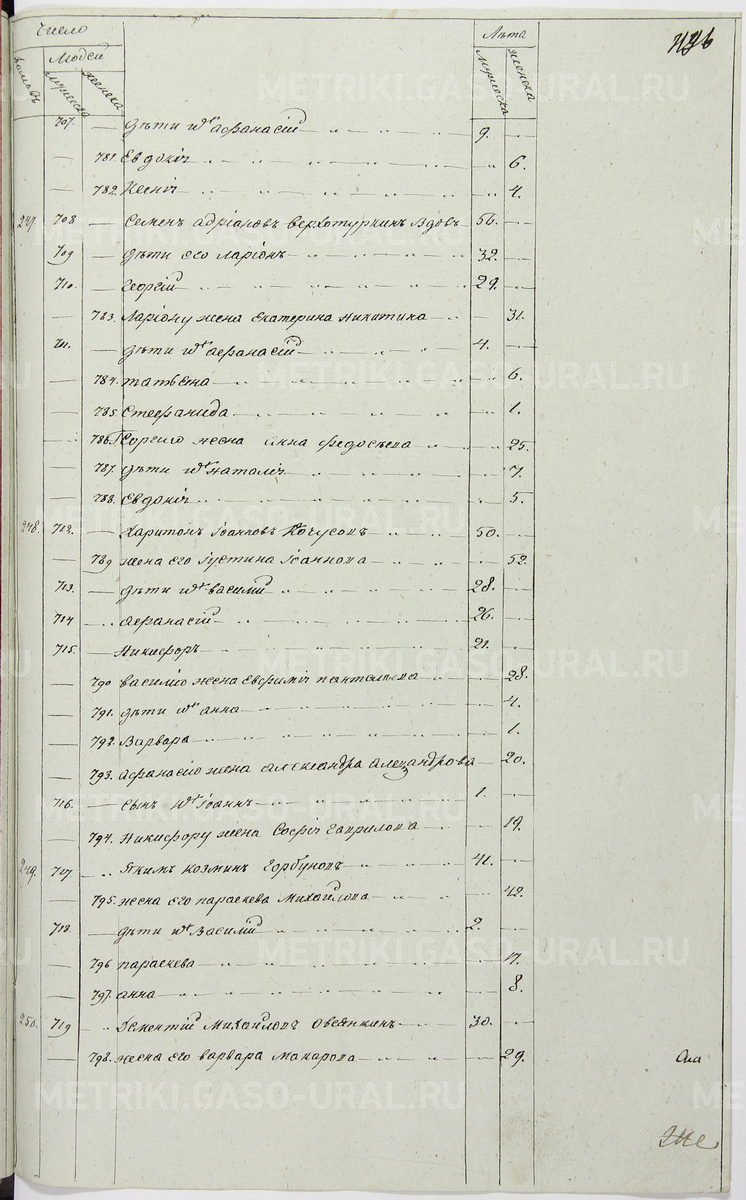 Число Лѣта
Людей
домовъ мужеска женска мужеска женска
707. дѣти ихъ афанасій 9.
781. Евдокія 6.
782. Ксенія 4.
247. 708 Семенъ адріановъ верхотуркинъ вдовъ 56.
709 дѣти его Ларіонъ 32.
710. Георгій 29.
783. Ларіону жена Екатерина Никитина 31.
711. дѣти ихъ афанасій 4.
784. татьяна 6.
785. Стефанида 1.
786. Георгію жена анна федосѣева 25.
787. дѣти ихъ наталія 7.
788. Евдокія 5.
248. 712. Харитонъ Іоанновъ Кочусовъ 50.
789 жена его Густина Іоаннова 52.
713. дѣти ихъ василій 28.
714 афанасій 26.
715. Никифоръ 21.
790 василію жена Евфимія пантелѣева 28.
791. дѣти ихъ анна 4.
792. Варвара 1.
793. афанасію жена александра александрова 20.
716. сынъ ихъ Іоаннъ 1.
794. Никифору жена Софія гаврилова 19.
249. 717 Якимъ козминъ Горбуновъ 41.
795. жена его параскева Михайлова 42.
718 дѣти ихъ Василій 2.
796 параскева 17.
797. анна 8.
250. 719 Дементій Михайловъ Овсянкинъ 30.
798. жена его варвара Макарова 29.
METRIKI.GASO-URAL.RU